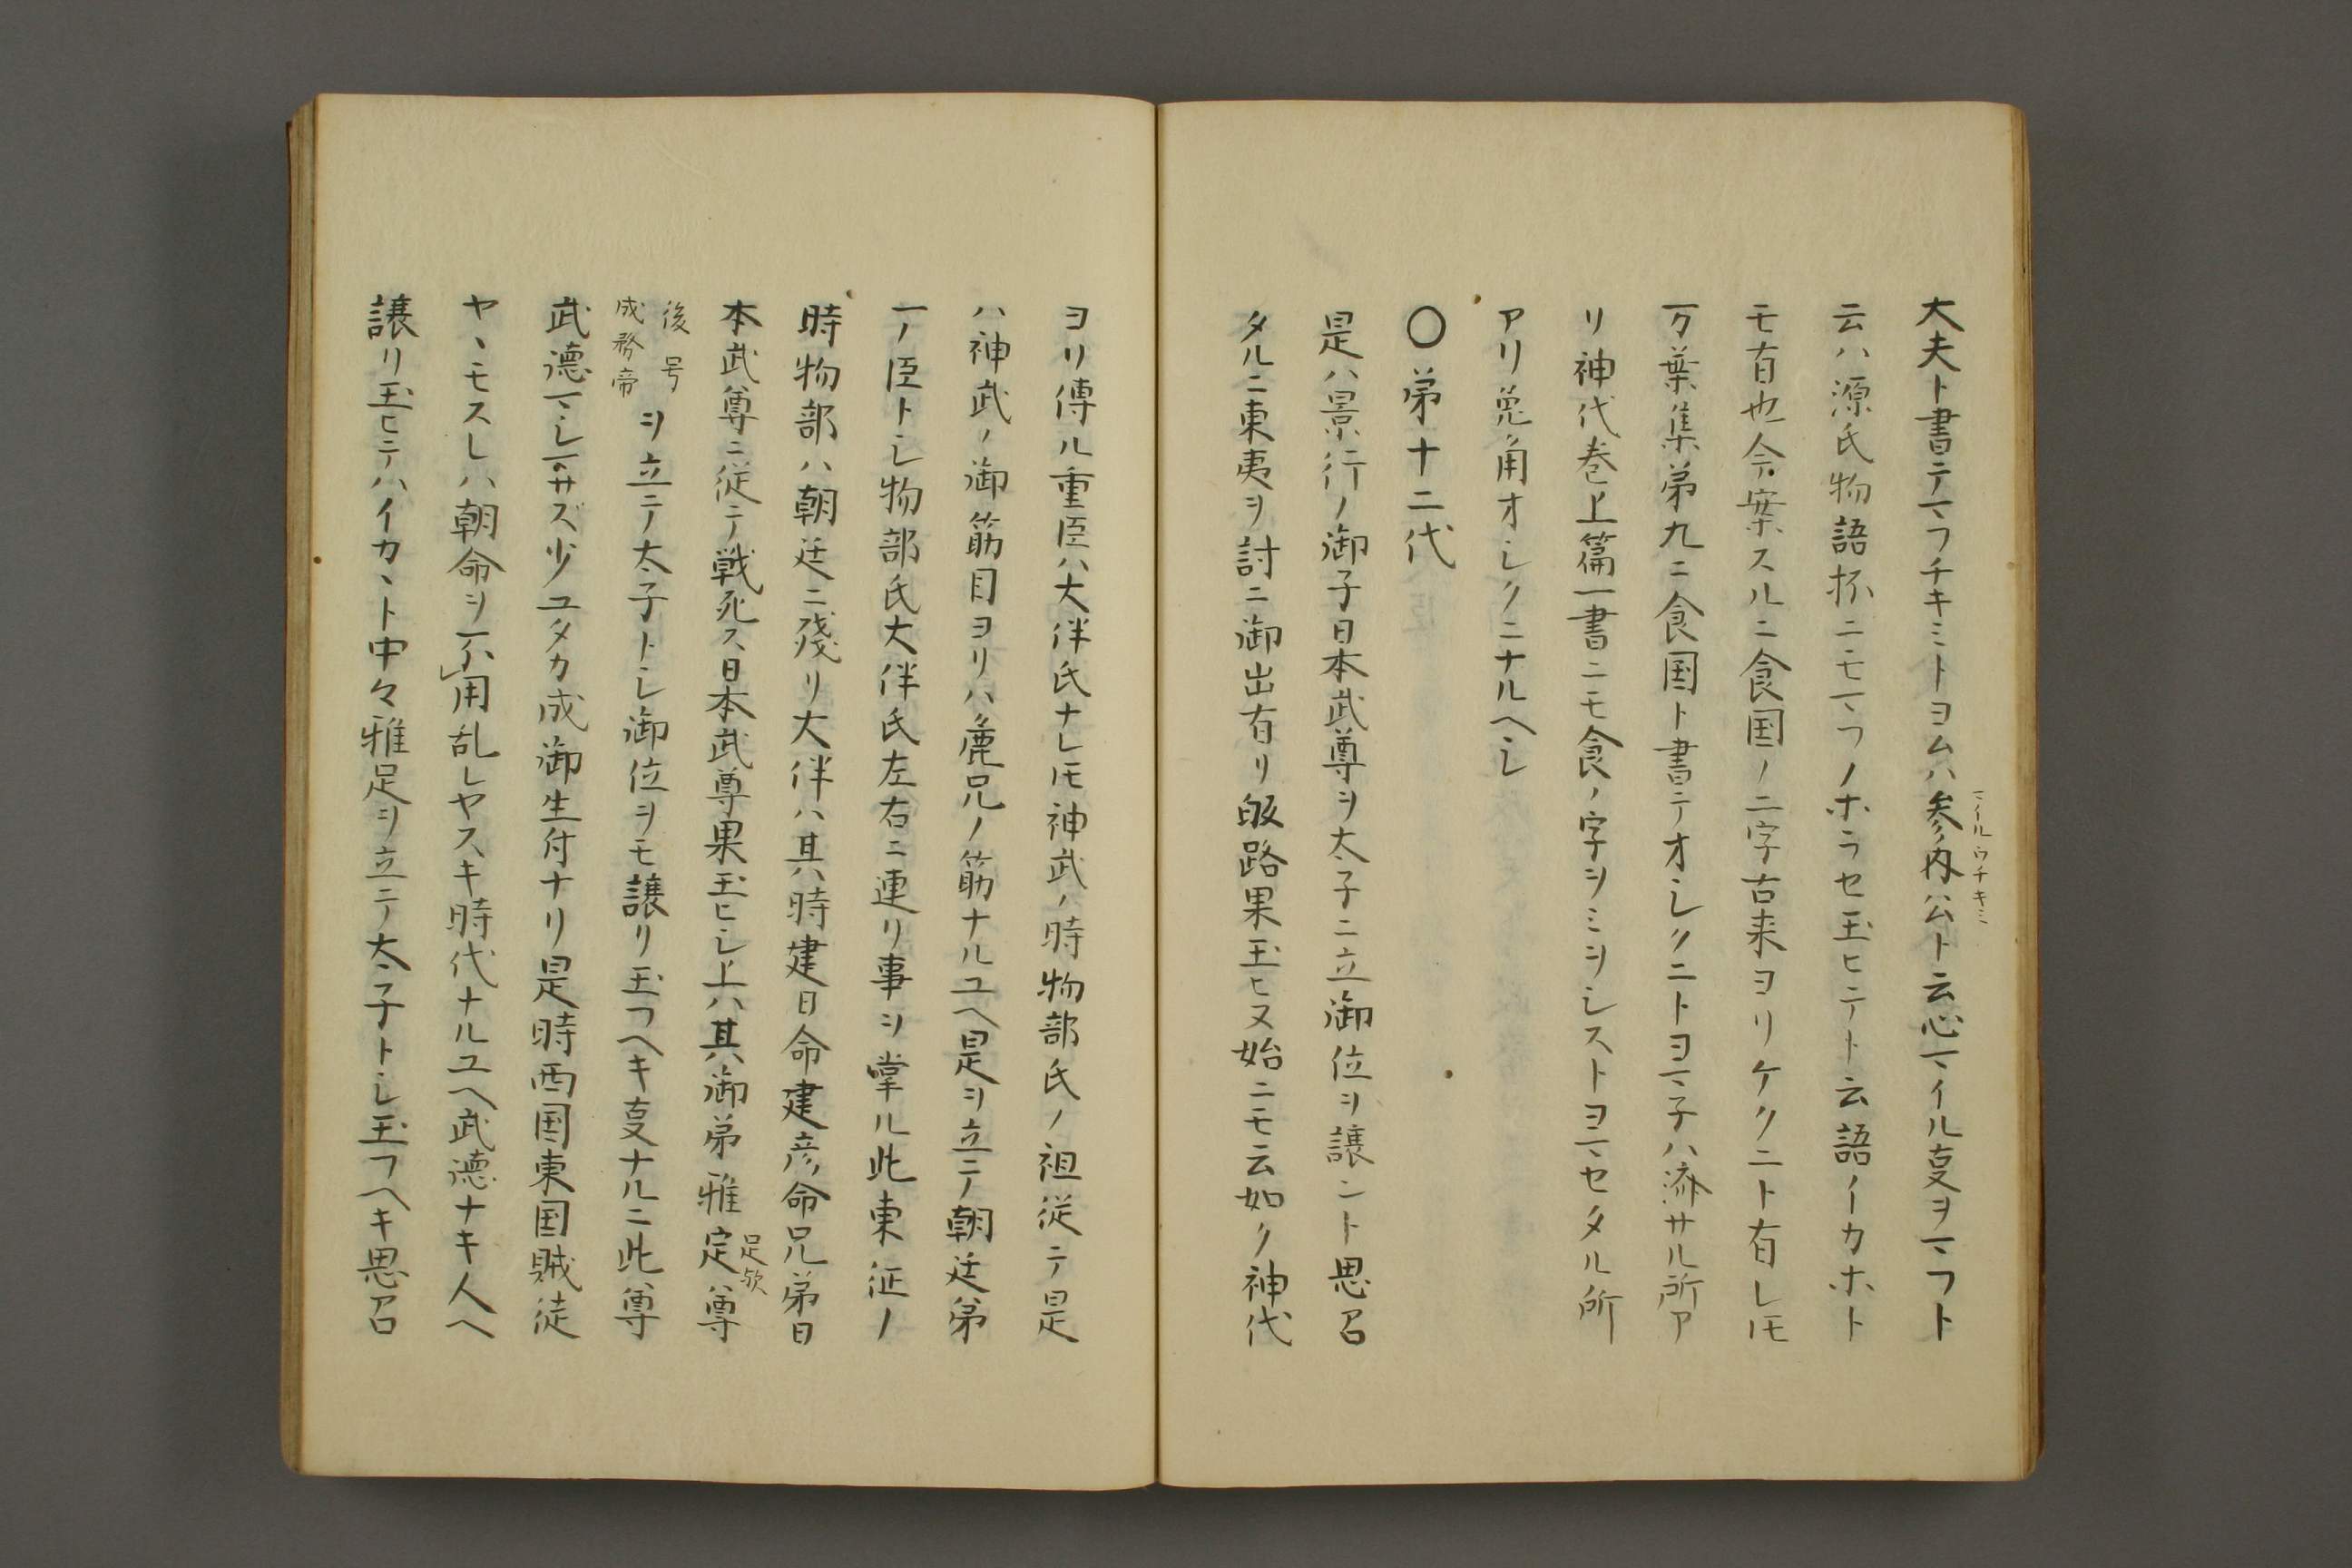 大夫ト書テマフチキミトヨムハ参内公ト云心マイル叓ヲマフト
マイルウチキミ
云ハ源氏物語抔ニモマフノホラセ玉ヒテト云語イカホト
モ有也今案スルニ食国ノ二字古来ヨリケクニト有レ𪜈
万葉集第九ニ食国ト書テオシクニトヨマ子ハ済サル所ア
リ神代巻上篇一書ニモ食ノ字ヲミヲシストヨマセタル所
アリ兎角オシクニナルヘシ
〇第十二代
是ハ景行ノ御子日本武尊ヲ太子ニ立御位ヲ譲ント思召
タルニ東夷ヲ討ニ御出有リ皈路果玉ヒ又始ニモ云如ク神代
ヨリ傳ル重臣ハ大伴氏ナレ𪜈神武ノ時物部氏ノ祖従テ是
ハ神武ノ御筋目ヨリハ麁兄ノ筋ナルユヘ是ヲ立テ朝廷第
一ノ臣トシ物部氏大伴氏左右ニ連リ事ヲ掌ル此東征ノ
時物部ハ朝廷ニ残リ大伴ハ其時建日命建彦命兄弟日
本武尊ニ従テ戦死ス日本武尊果玉ヒシ上ハ其御弟雅定尊
足歟
後号
成務帝
ヲ立テ太子トシ御位ヲモ譲リ玉フヘキ叓ナルニ此尊
武徳マシマサズ少ユタカ成御生付ナリ是時西国東国賊徒
ヤヽモスレハ朝命ヲ不用乱レヤスキ時代ナルユヘ武徳ナキ人ヘ
譲リ玉ヒテハイカヽト中々雅足ヲ立テ太子トシ玉フヘキ思召